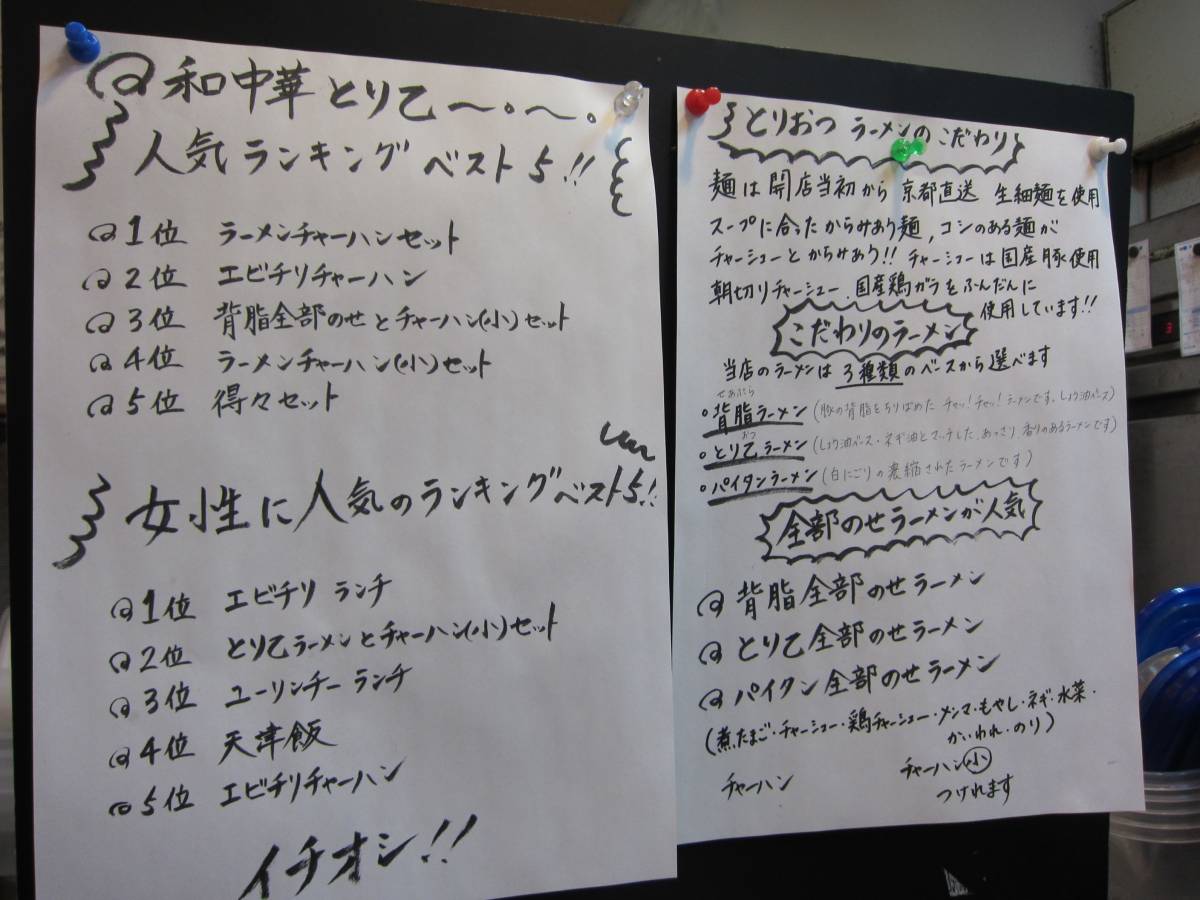 和中華とり乙〜・〜・
人気ランキング ベスト5!!
1位 ラーメンチャーハンセット
2位 エビチリチャーハン
3位 背脂全部のせとチャーハン(小)セット
4位 ラーメンチャーハン(小)セット
5位 得々セット
女性に人気のランキングベスト5!!
1位 エビチリ ランチ
2位 とり乙ラーメンとチャーハン(小)セット
3位 ユーリンチー ランチ
4位 天津飯
5位 エビチリチャーハン
イチオシ!!
とりおつ ラーメンのこだわり
麺は開店当初から 京都直送 生細麺を使用
スープに合ったからみあう麺,コシのある麺が
チャーシューとからみあう!! チャーシューは国産豚使用
朝切りチャーシュー.国産鶏ガラをふんだんに
使用しています!!
こだわりのラーメン
当店のラーメンは3種類のベースから選べます
せあぶら
背脂ラーメン(豚の背脂をちりばめた チャッ!チャッ!ラーメンです。しょう油ベース)
おつ
とり乙ラーメン(しょう油ベース・ネギ油とマッチした.あっさり.香りのあるラーメンです)
パイタンラーメン(白にごりの濃縮されたラーメンです)
全部のせラーメンが人気
背脂全部のせラーメン
とり乙全部のせラーメン
パイタン全部のせラーメン
(煮たまご・チャーシュー・鶏チャーシュー・メンマ・もやし・ネギ・水菜・
かいわれ・のり)
チャーハン
チャーハン小
つけれます
3